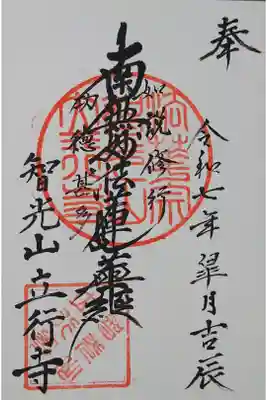 奉
令和七年 皐月吉辰
如説修行
南無妙法蓮華経
功徳甚多
智光山立行寺